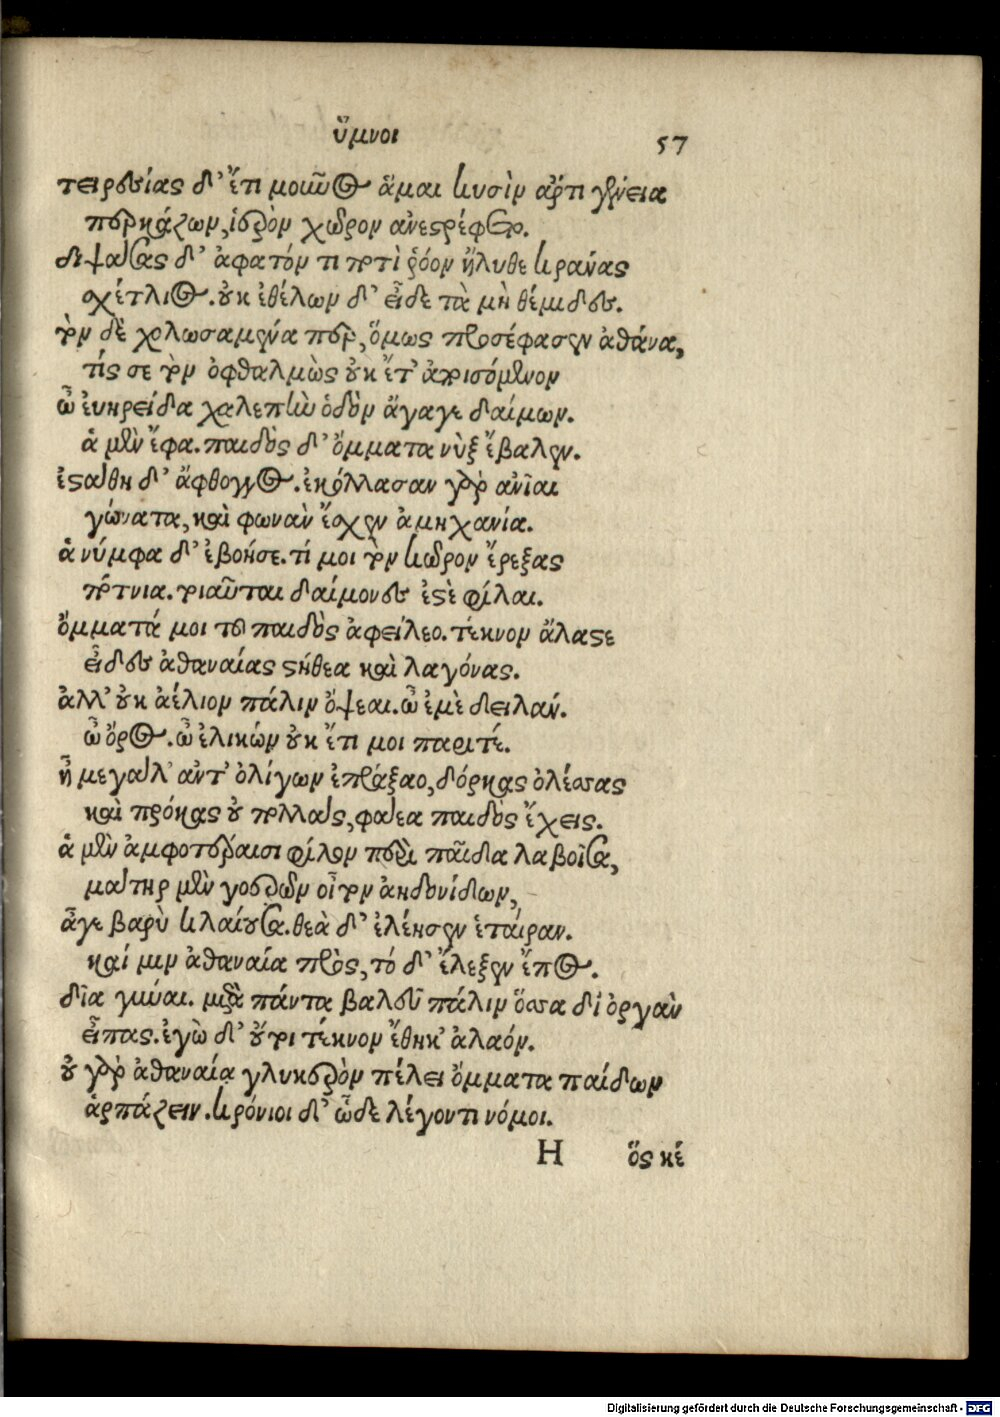 ὕμνοι 57
τειρεσίας δ' ἔτι μοῦνος ἅμαι κυσὶν ἄρτι γένεια
περκάζων, ἱερὸν χῶρον ἀνεστρέφετο.
διψάσας δ' ἀφατόν τι ποτὶ ῥόον ἤλυθε κράνας
σχέτλιος. οὐκ ἐθέλων δ' εἶδε τὰ μὴ θέμιδες.
τὸν δὲ χολωσαμένα περ, ὅμως προσέφασεν ἀθάνα,
τίς σε τὸν ὀφθαλμὼς οὐκ ἔτ' ἀποισόμενον
ὦ εὐηρείδα χαλεπὴν ὁδὸν ἄγαγε δαίμων.
ἁ μὲν ἔφα. παιδὸς δ' ὄμματα νὺξ ἔβαλεν.
ἐστάθη δ' ἄφθογγος. ἐκόλλασαν γὰρ ἀνῖαι
γώνατα, καὶ φωνὰν ἔσχεν ἀμηχανία.
ἁ νύμφα δ' ἐβόησε. τί μοι τὸν κῶρον ἔρεξας
πότνια. τοιαῦται δαίμονες ἐστὲ φίλαι.
ὄμματά μοι τῶ παιδὸς ἀφείλεο. τέκνον ἄλαστε
εἶδες ἀθαναίας στήθεα καὶ λαγόνας.
ἀλλ' οὐκ ἀέλιον πάλιν ὄψεαι. ὦ ἐμὲ δειλάν.
ὦ ὄρος. ὦ ἑλικὼν οὐκ ἔτι μοι παριτέ.
ἦ μεγάλ' ἀντ' ὀλίγων ἐπράξαο, δόρκας ὀλέσσας
καὶ πρόκας οὐ πολλάς, φάεα παιδὸς ἔχεις.
ἁ μὲν ἀμφοτέραισι φίλον περὶ παῖδα λαβοῖσα,
μάτηρ μὲν γοερῶν οἶτον ἀηδονίδων,
ἆγε βαρὺ κλαίουσα. θεὰ δ' ἐλέησεν ἑταίραν.
καί μιν ἀθαναία πρὸς, τό δ' ἔλεξεν ἔπος.
δῖα γύναι. μετὰ πάντα βαλεῦ πάλιν ὅσσα δι' ὀργὰν
εἶπας. ἐγὼ δ' οὔτοι τέκνον ἔθηκ' ἀλαόν.
οὐ γὰρ ἀθαναίᾳ γλυκερὸν πέλει ὄμματα παίδων
ἁρπάζειν. κρόνιοι δ' ὧδε λέγοντι νόμοι.
H ὅς κέ
Digitalisierung gefördert durch die Deutsche Forschungsgemeinschaft - DFG